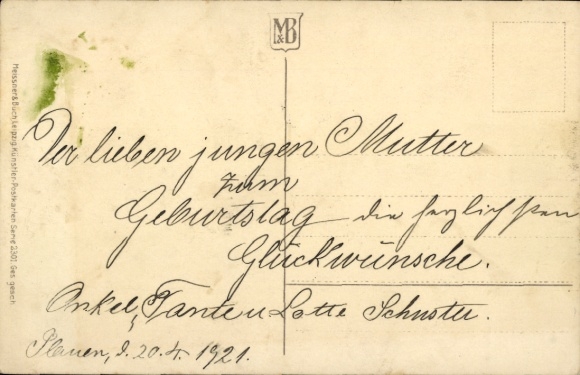 M&B
Meissner & Buch Leipzig Künstler-Postkarten Serie 2301. Ges. gesch.
Der lieben jungen Mutter
zum
Geburtstag die herzlichsten
Glückwünsche.
Onkel, Tante u Lotte Schuster.
Plauen, d. 20.4. 1921.